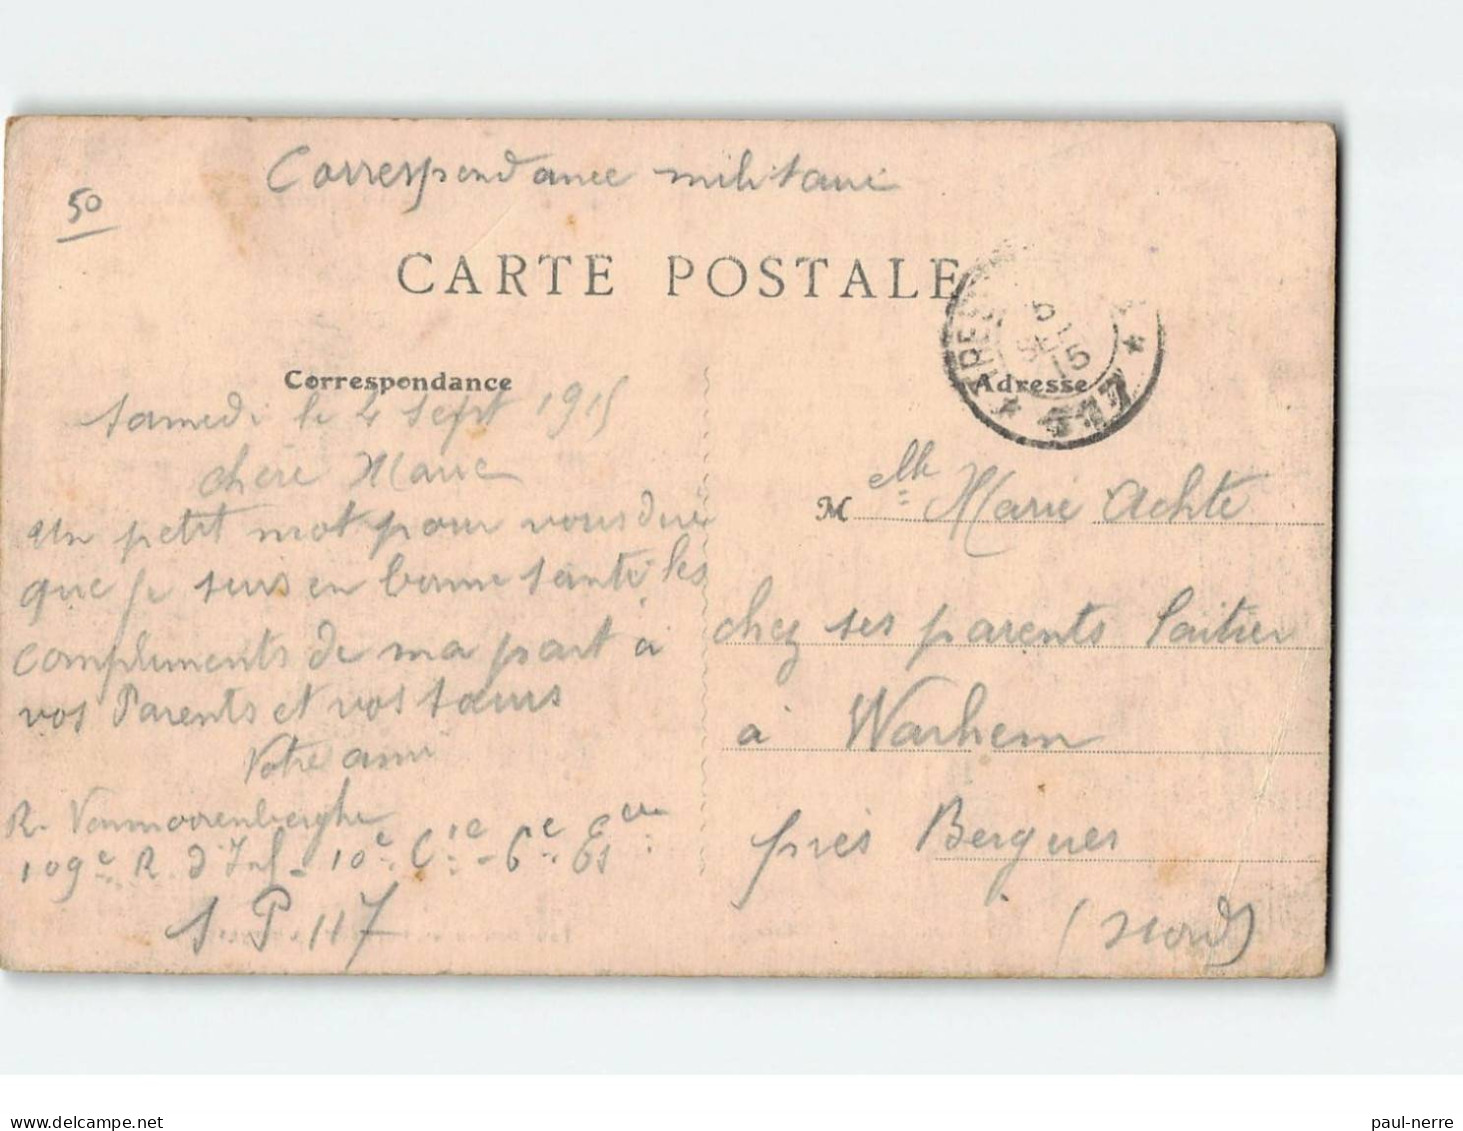 Correspondance militaire
50
CARTE POSTALE
Correspondance
Adresse
TRESOR
5
15
* 117 *
Samedi le 4 Sept 1915
chère Marie
Un petit mot pour vous dire
que je suis en bonne santé les
compliments de ma part à
vos Parents et vos sœurs
Votre ami
R. Vanmoorenberghe
109e R. d'Inf - 10e Cie - 6e Escou
S P. 117
M elle Marie Achte
chez ses parents Laitier
à Warhem
près Bergues
(Nord)
delcampe.net
paul-nerre